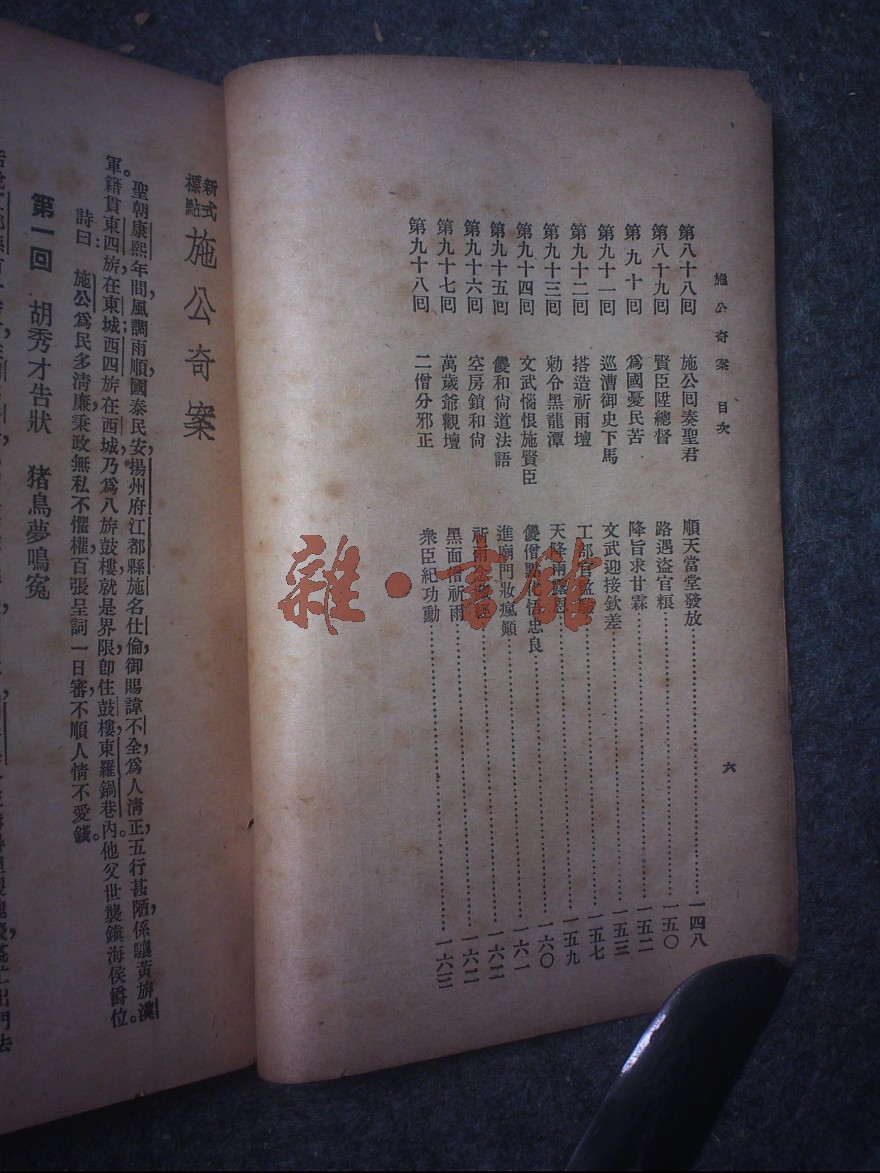 施公奇案 目次
六
第八十八回 施公回奏聖君 順天當堂發放 一四八
第八十九回 賢臣陞總督 路遇盜官粮 一五〇
第九十回 爲國憂民苦 降旨求甘霖 一五二
第九十一回 巡漕御史下馬 文武迎接欽差 一五三
第九十二回 搭造祈雨壇 工部官 一五七
第九十三回 勅令黑龍潭 天降雨 一五九
第九十四回 文武惱恨施賢臣 傻僧點化悟忠良 一六〇
第九十五回 傻和尙道法語 進廟門妝瘋顚 一六一
第九十六回 空房鎖和尙 祈雨念 一六二
第九十七回 萬歲爺觀壇 黑面僧祈雨 一六二
第九十八回 二僧分邪正 衆臣紀功勳 一六三
雜·書館
新式標點 施公奇案
聖朝康熙年間，風調雨順，國泰民安，揚州府江都縣施名仕倫，御賜諱不全，爲人淸正，五行甚陋，係驤黃旂漢
軍，籍貫東四旂，在東城；西四旂在西城，乃爲八旂，鼓樓就是界限，卽住鼓樓東羅鍋巷內。他父世襲鎭海侯爵位。
詩曰： 施公爲民多淸廉，秉政無私不懼權，百張呈詞一日審，不順人情不愛錢。
第一回 胡秀才告狀 猪鳥夢鳴冤